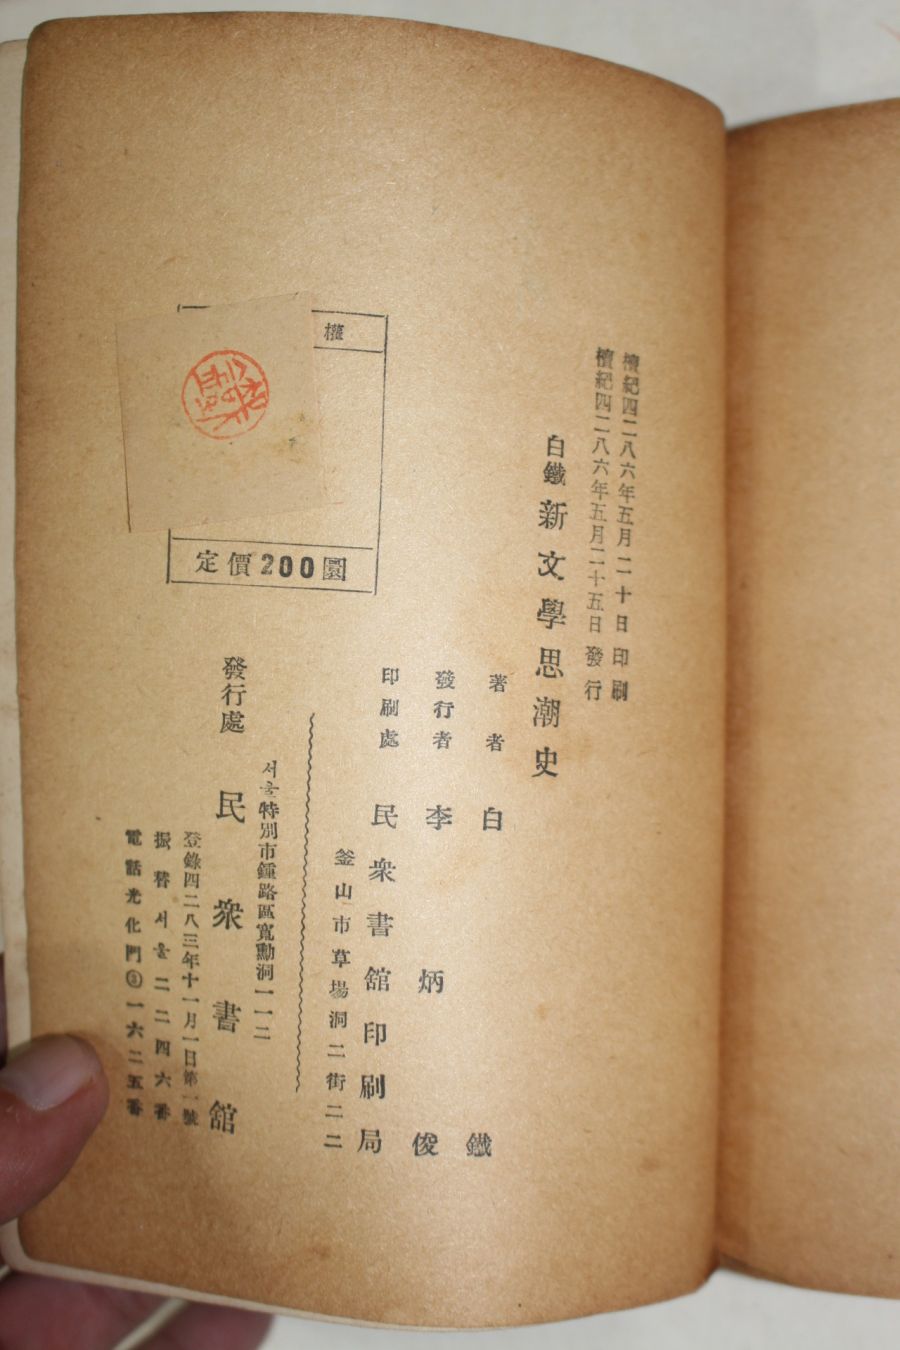 檀紀四二八六年五月二十日 印刷
檀紀四二八六年五月二十五日 發行
白鐵 新文學思潮史
著者 白鐵
發行者 李炳俊
印刷處 民衆書舘印刷局
釜山市草場洞二街二二
權
定價200圜
서울特別市鍾路區寬勳洞一一二
發行處 民衆書舘
登錄四二八三年十一月一日第一號
振替서울二二四六番
電話光化門③一六二五番